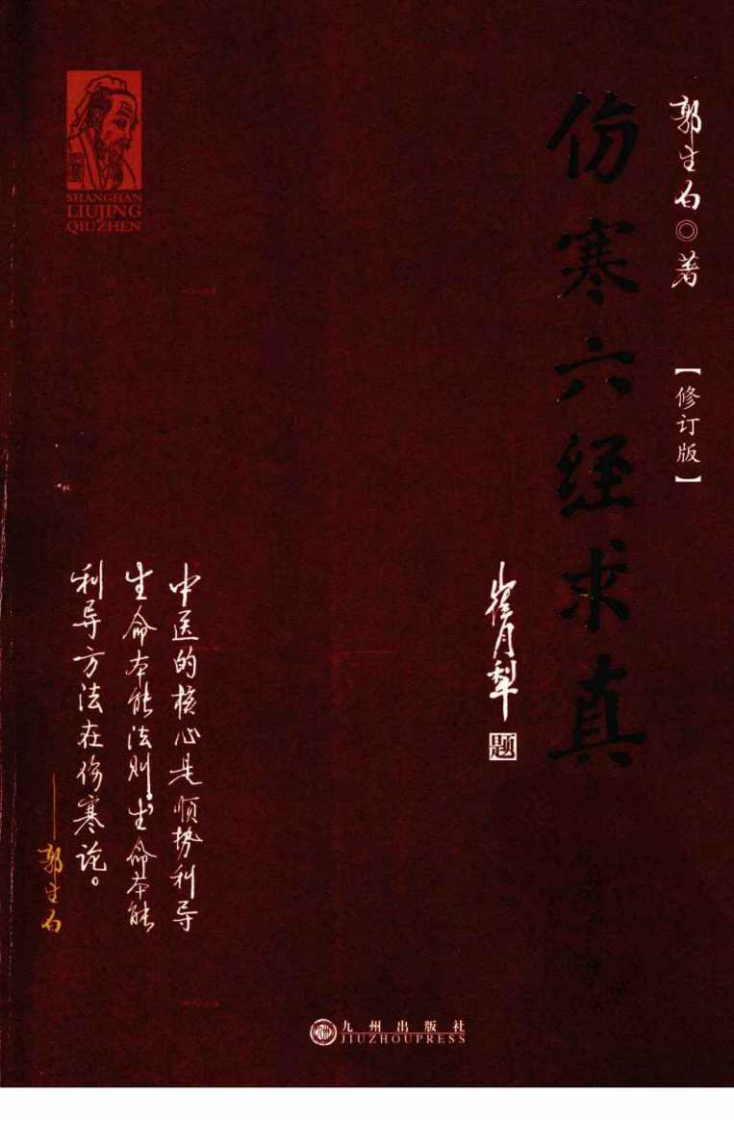 郭生白◎著
【修订版】
伤寒六经求真
崔月犁
题
SHANGHAN
LIUJING
QIUZHEN
中医的核心是顺势利导
生命本能法则，生命本能
利导方法在伤寒论。
——郭生白
九州出版社
JIUZHOUPRESS